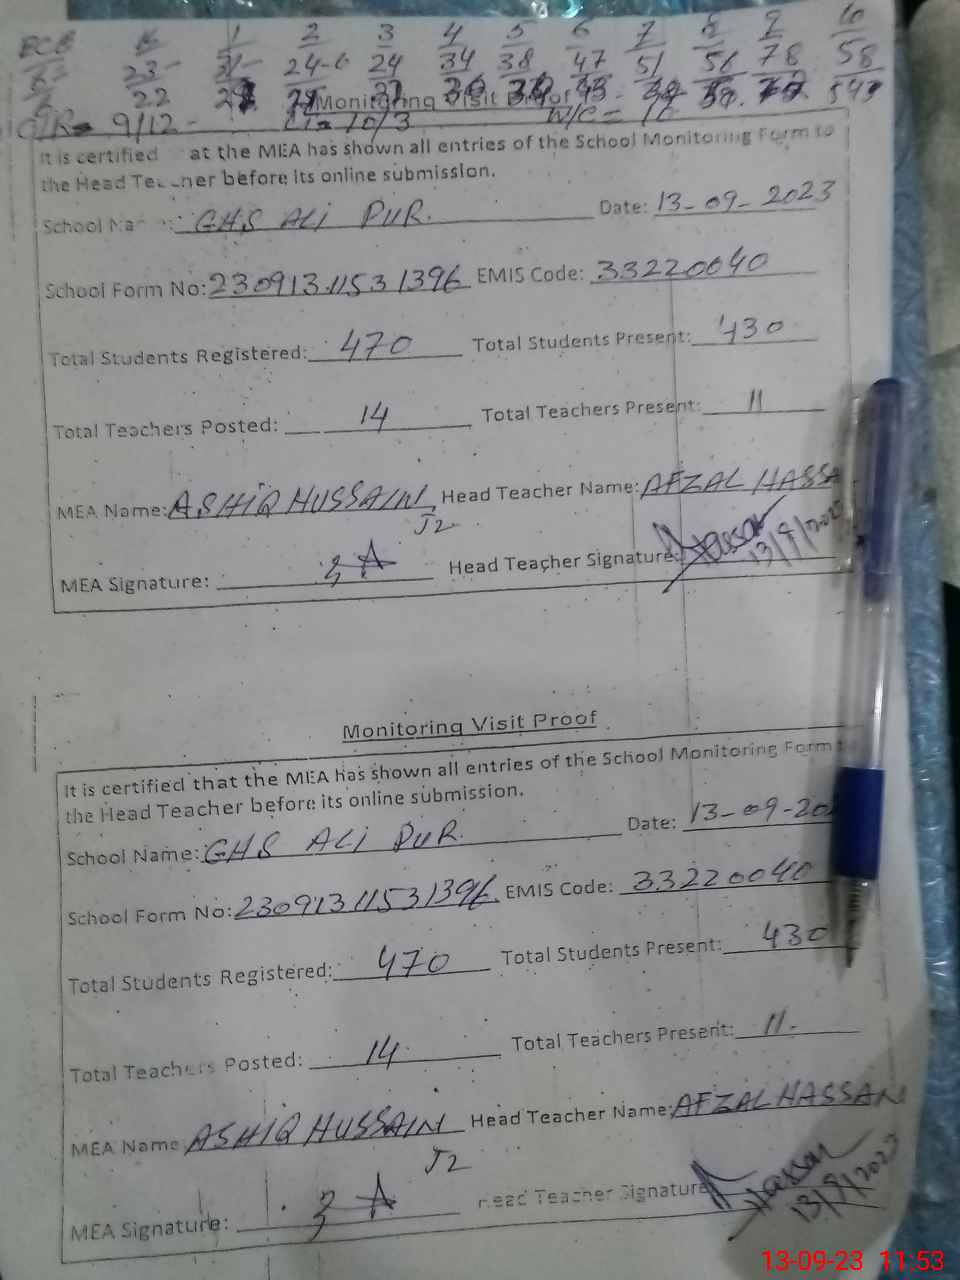 K 1 2 3 4 5 6 7 8 9 10
23 31 24-6 24 34 38 47 51 56 78 58
22
9/12 10/3 W/C =
Monitoring Visit Proof
It is certified at the MEA has shown all entries of the School Monitoring Form to
the Head Teacher before its online submission.
School Name: GHS ALI PUR. Date: 13-09-2023
School Form No: 2309131531396 EMIS Code: 33220040
Total Students Registered: 470 Total Students Present: 430
Total Teachers Posted: 14 Total Teachers Present: 11
MEA Name: ASHIQ HUSSAIN Head Teacher Name: AFZAL HASSA
J2
MEA Signature: Head Teacher Signature: Hassan
13/9/2023
Monitoring Visit Proof
It is certified that the MEA has shown all entries of the School Monitoring Form
the Head Teacher before its online submission.
School Name: GHS ALI PUR. Date: 13-09-202
School Form No: 23091311531396 EMIS Code: 33220040
Total Students Registered: 470 Total Students Present: 430
Total Teachers Posted: 14 Total Teachers Present: 11.
MEA Name ASHIQ HUSSAIN Head Teacher Name: AFZAL HASSAN
J2
MEA Signature: Head Teacher Signature Hassan
13/9/2023
13-09-23 11:53